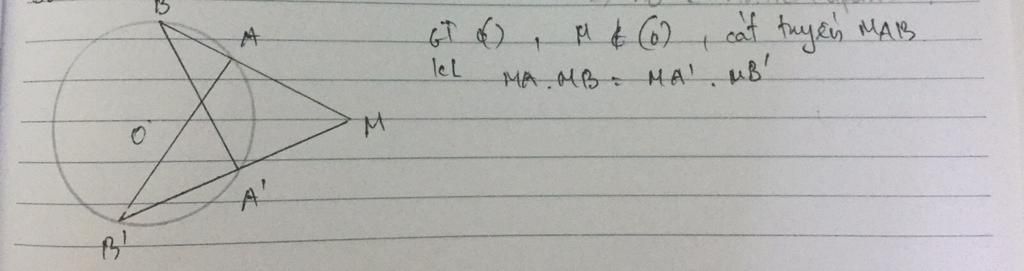 B
A
GT (O), M ∉ (O), cát tuyến MAB
KL MA.MB = MA'.MB'
O
M
A'
B'